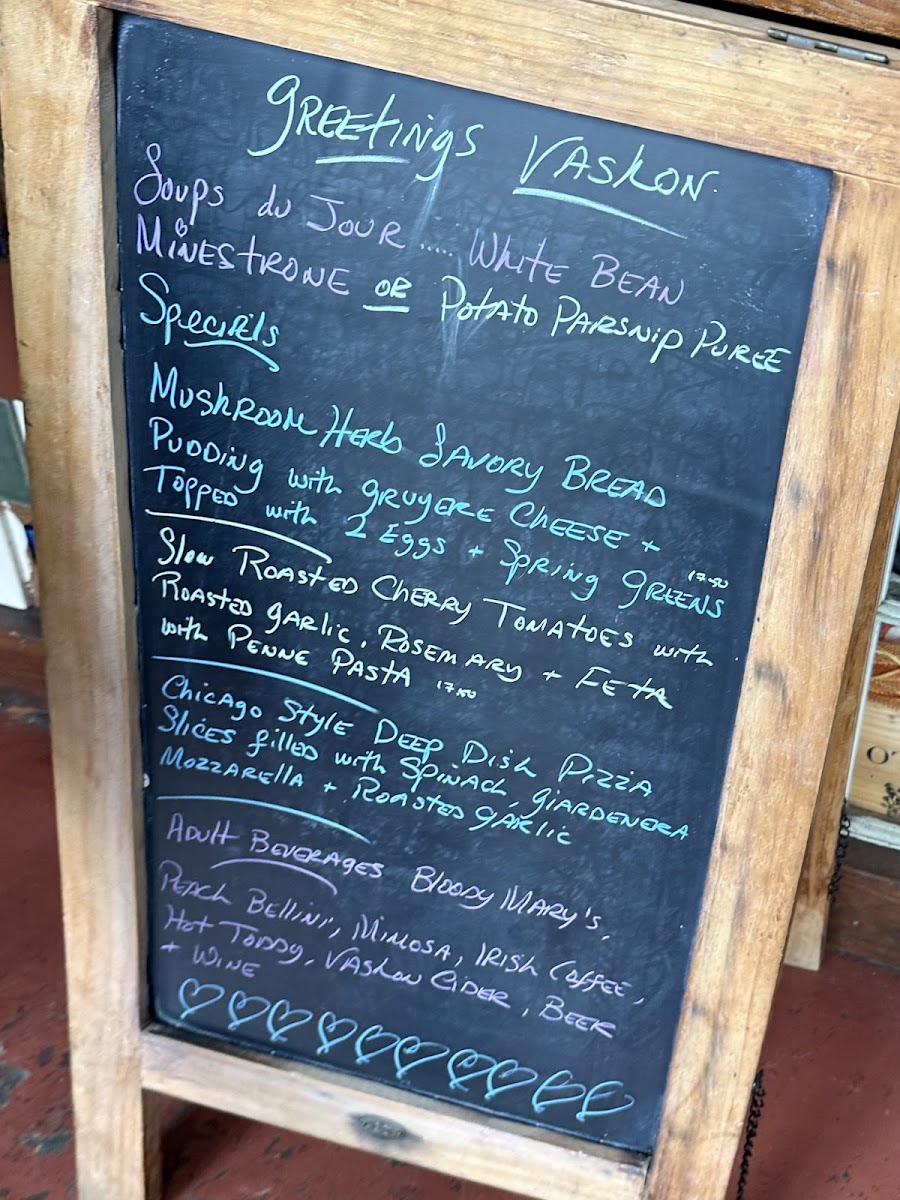 Greetings Vashon
Soups du Jour ..... White Bean
Minestrone or Potato Parsnip Pureé
Specials
Mushroom Herb Savory Bread
Pudding with gruyere Cheese +
Topped with 2 Eggs + Spring Greens 17.50
Slow Roasted Cherry Tomatoes with
Roasted garlic, Rosemary + Feta
with Penne Pasta 17.50
Chicago Style Deep Dish Pizza
Slices filled with Spinach, giardenera
Mozzarella + Roasted garlic
Adult Beverages Bloody Mary's,
Peach Bellini, Mimosa, Irish Coffee,
Hot Toddy, Vashon Cider, Beer
+ Wine